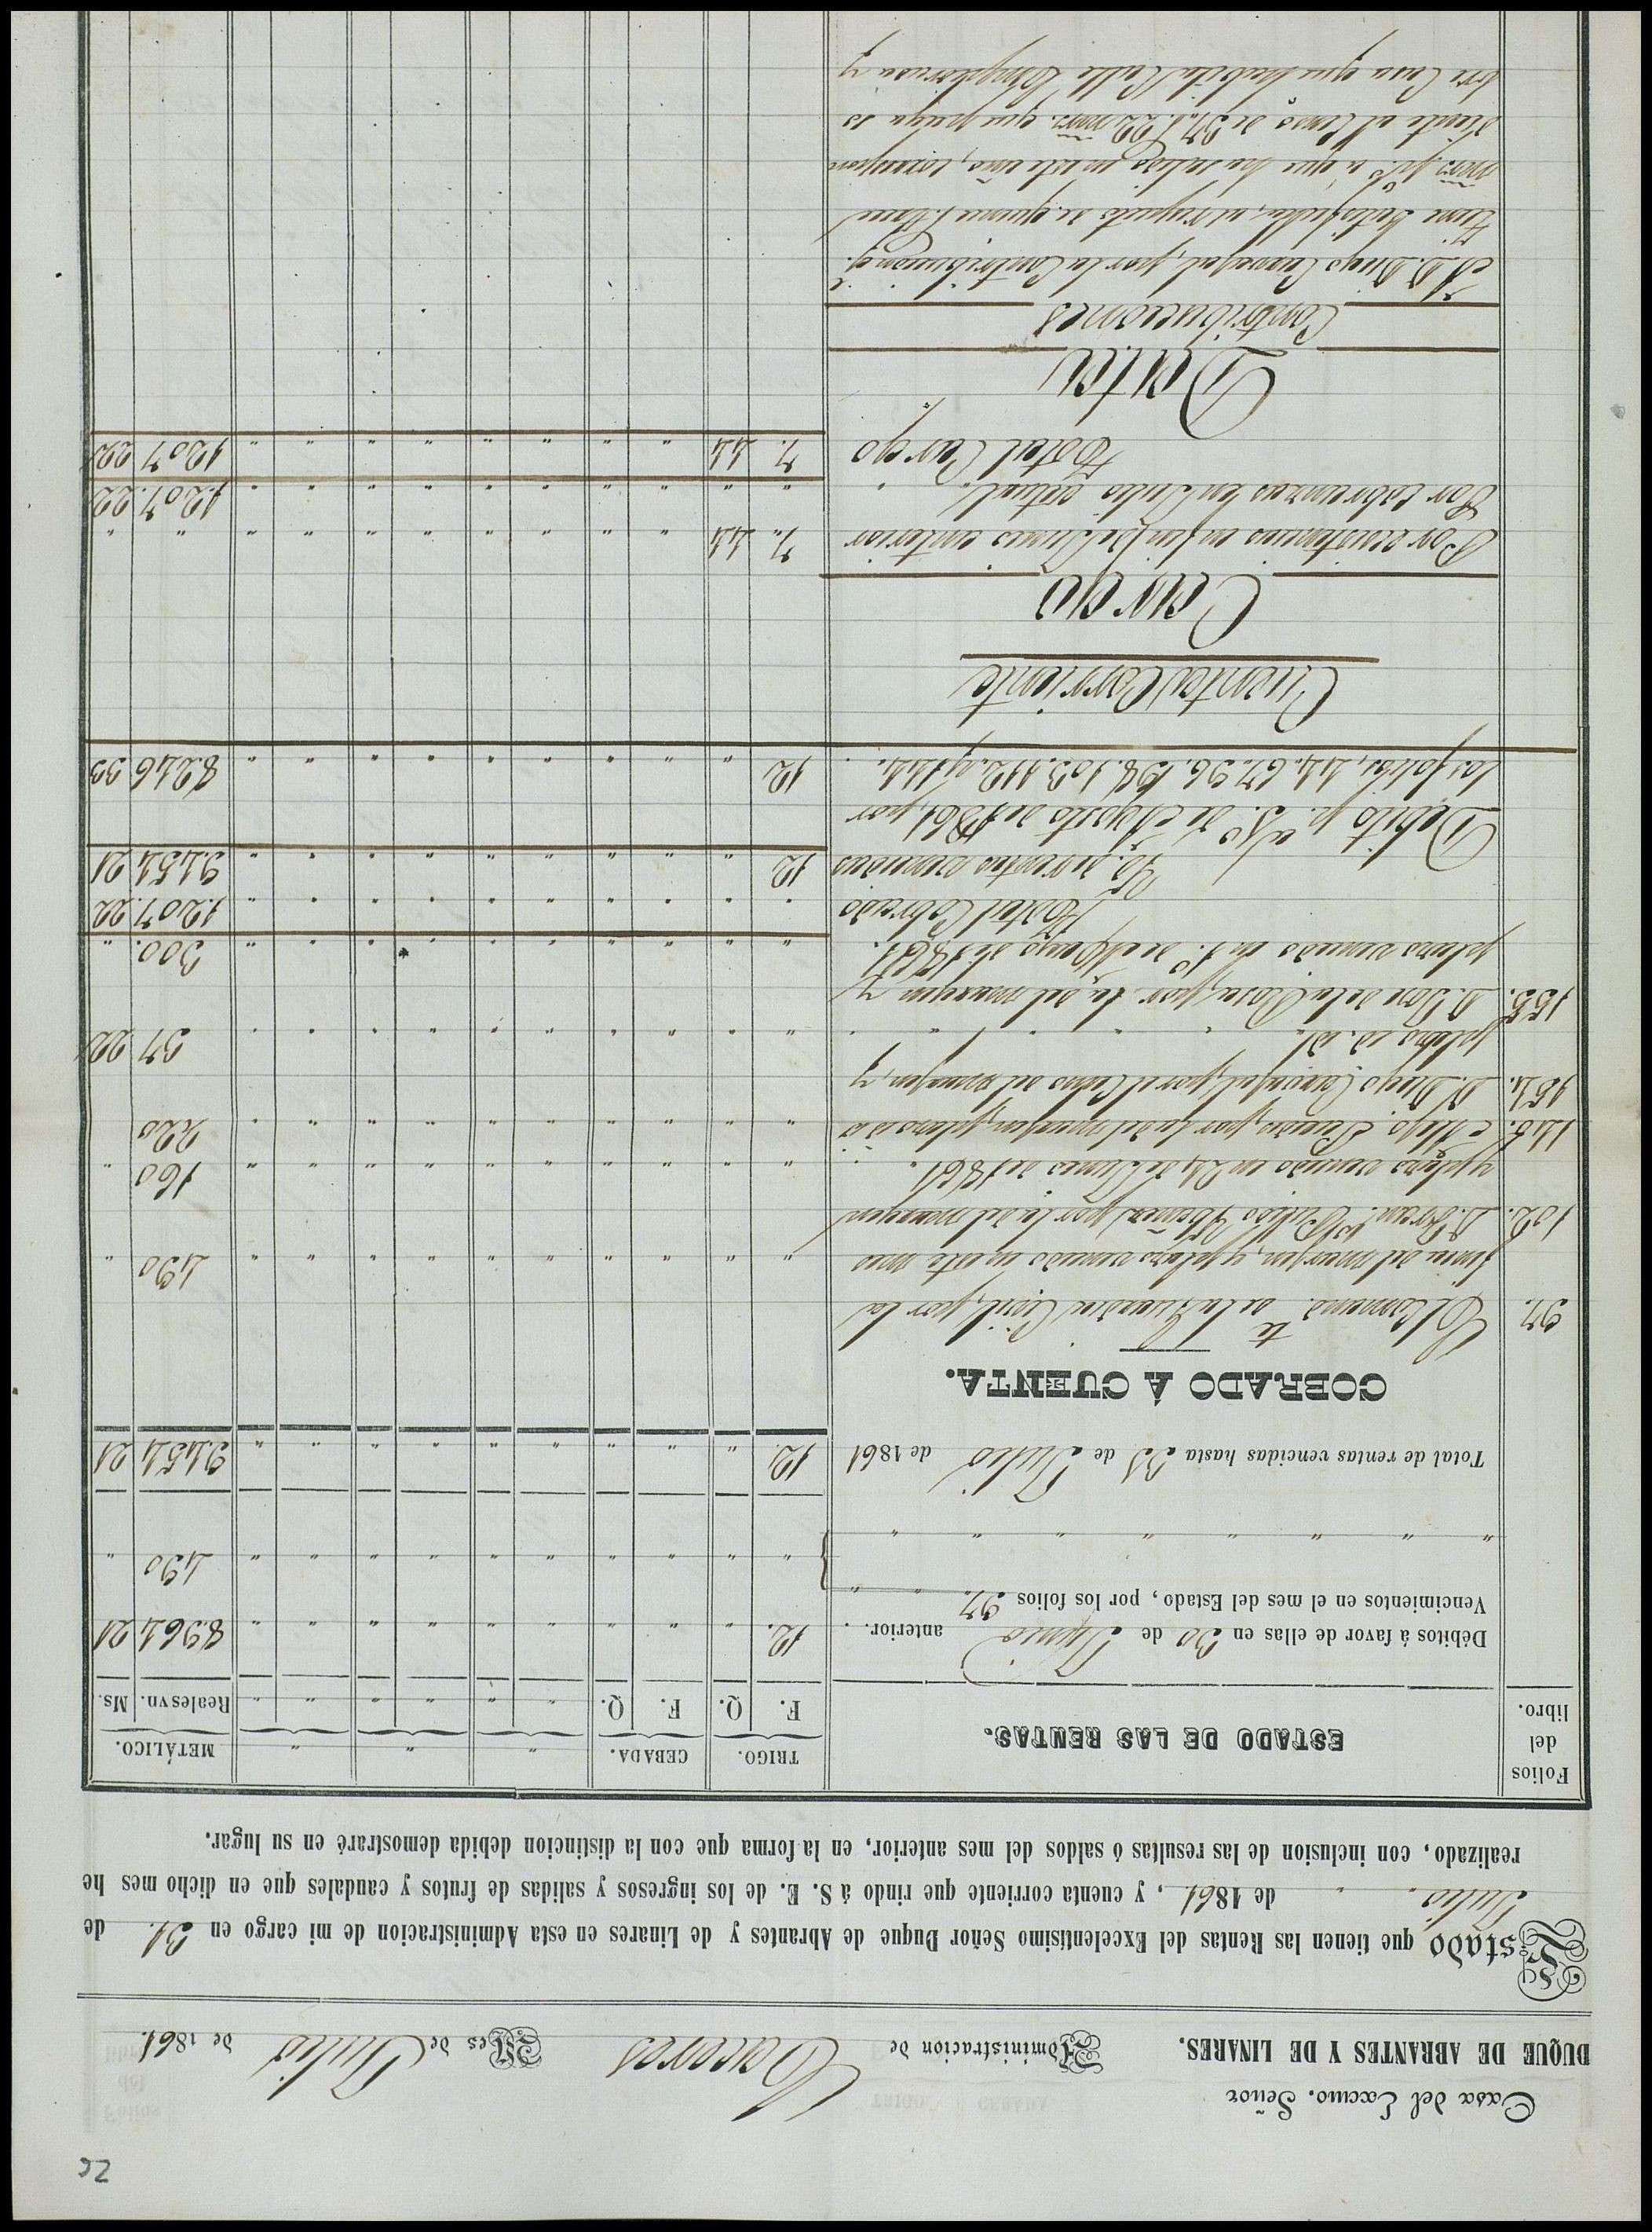 52
Casa del Excmo. Señor
DUQUE DE ABRANTES Y DE LINARES.
Administracion de Cáceres Mes de Julio de 1861.
Estado que tienen las Rentas del Excelentísimo Señor Duque de Abrantes y de Linares en esta Administracion de mi cargo en 31. de
Julio. de 1861, y cuenta corriente que rindo á S. E. de los ingresos y salidas de frutos y caudales que en dicho mes he
realizado, con inclusion de las resultas ó saldos del mes anterior, en la forma que con la distincion debida demostraré en su lugar.
Folios del libro. ESTADO DE LAS RENTAS. TRIGO. CEBADA. " " " METÁLICO.
F. Q. F. Q. " " " " " " Reales vn. Ms.
Débitos á favor de ellas en 30 de Junio anterior. 12. " " " " " " " " " 8.964 21
Vencimientos en el mes del Estado, por los folios 97. " "
" " " " " " " " " " 490 "
" " " " " " " "
Total de rentas vencidas hasta 31 de Julio de 1861 12. " " " " " " " " " 9.454 21
COBRADO Á CUENTA.
97. El Comand.te de la Guardia Civil, por la
finca del margen, y plazo vencido en este mes " " " " " " " " " " 490 "
102. D. Joaq.n Mª Pulido por la del margen
y plazo vencido en 24 de Junio de 1861. " " " " " " " " " " 160 "
146. Alejo Pando, por la del margen, plazo id " " " " " " " " " " 220
151. D. Diego Carvajal, por el Censo del margen, y
plazo id. id. " " " " " " " " " " 37 22
155. D. José de la Rosa, por la del margen y
plazo vencido en 1.º de Mayo de 1861. " " " " " " " " " " 300. "
Total Cobrado " " " " " " " " " " 1.207. 22
Yd. de rentas vencidas 12 " " " " " " " " " 9.454 21
Débito p.ª 1.º de Agosto de 1861, por
los folios, 44. 67. 96. 98. 103. 112. y 144. 12 " " " " " " " " " 8.246 33
Cuenta Corriente
Cargo
Por existencias en fin de Junio anterior 7.. 44 " " " " " " " " " "
Por cobranzas en Julio actual. " " " " " " " " " " 1.207. 22
Total Cargo 7. 44 " " " " " " " " 1.207 22
Data
Contribuciones
A D. Diego Carvajal, por la Contribucion q.
tiene satisfecha, al respecto de
mrs. p.% á que ha salido en este año, correspon
diente al Censo de 37 r. 22 mrs. que paga s
bre Casa que habita Calle Empedrada y